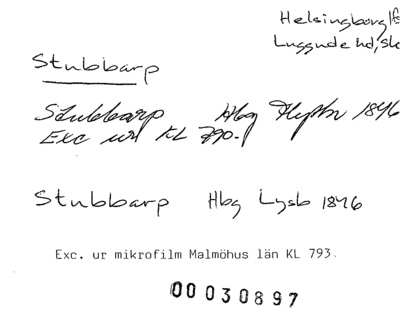 Helsingborg lfs
Luggude hd, Sk
Stubbarp
Stubbarp Hbg 1846
Exc ur KL 790.
Stubbarp Hbg Lysb 1846
Exc. ur mikrofilm Malmöhus län KL 793.
00030897